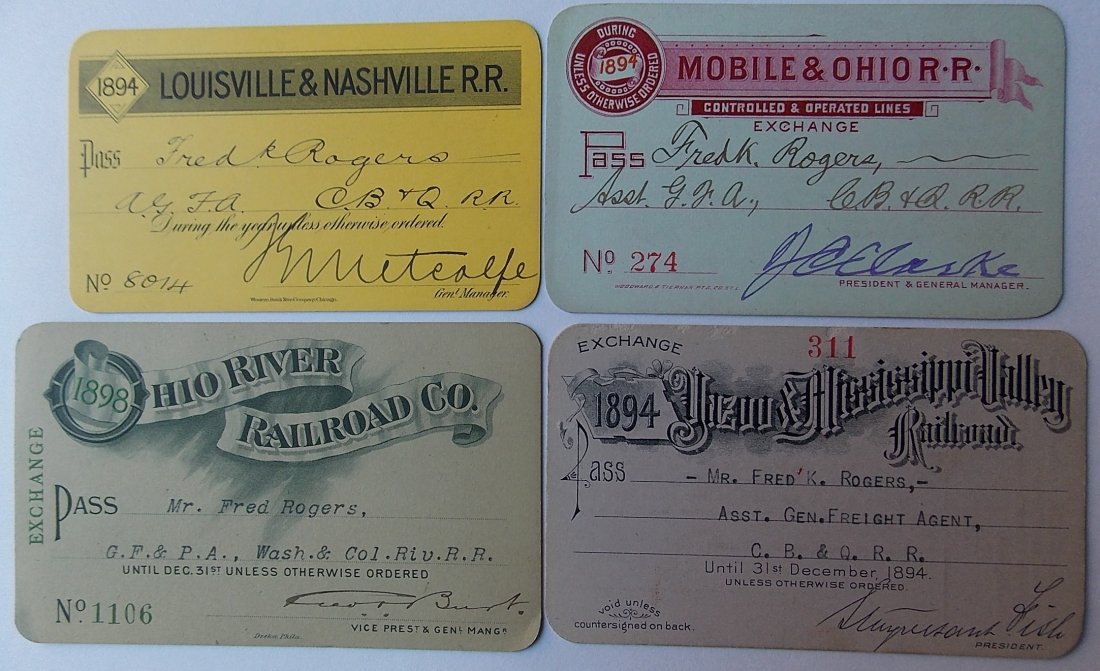 1894 LOUISVILLE & NASHVILLE R.R.
Pass Fred k Rogers
A.G.F.A. C.B. & Q. R.R.
During the year unless otherwise ordered.
J.G. Metcalfe
No 8014 Gen'l Manager.
Western Bank Note Company, Chicago.
DURING 1894 UNLESS OTHERWISE ORDERED
MOBILE & OHIO R.R.
CONTROLLED & OPERATED LINES
EXCHANGE
Pass Fredk. Rogers,
Asst. G.F.A., C.B. & Q. R.R.
No 274 J C Clarke
PRESIDENT & GENERAL MANAGER.
WOODWARD & TIERNAN PTG. CO. ST. L.
1898 OHIO RIVER
RAILROAD CO.
EXCHANGE
PASS Mr. Fred Rogers,
G.F.& P.A., Wash.& Col.Riv.R.R.
UNTIL DEC. 31ST UNLESS OTHERWISE ORDERED
No 1106 Geo. Burt.
VICE PREST & GENL MANGR
Dreka, Phila.
EXCHANGE 311
1894 Yazoo & Mississippi Valley
Railroad.
Pass - MR. FRED'K. ROGERS,-
ASST. GEN.FREIGHT AGENT,
C. B. & Q. R. R.
Until 31st December, 1894.
UNLESS OTHERWISE ORDERED.
void unless
countersigned on back.
Stuyvesant Fish
PRESIDENT.